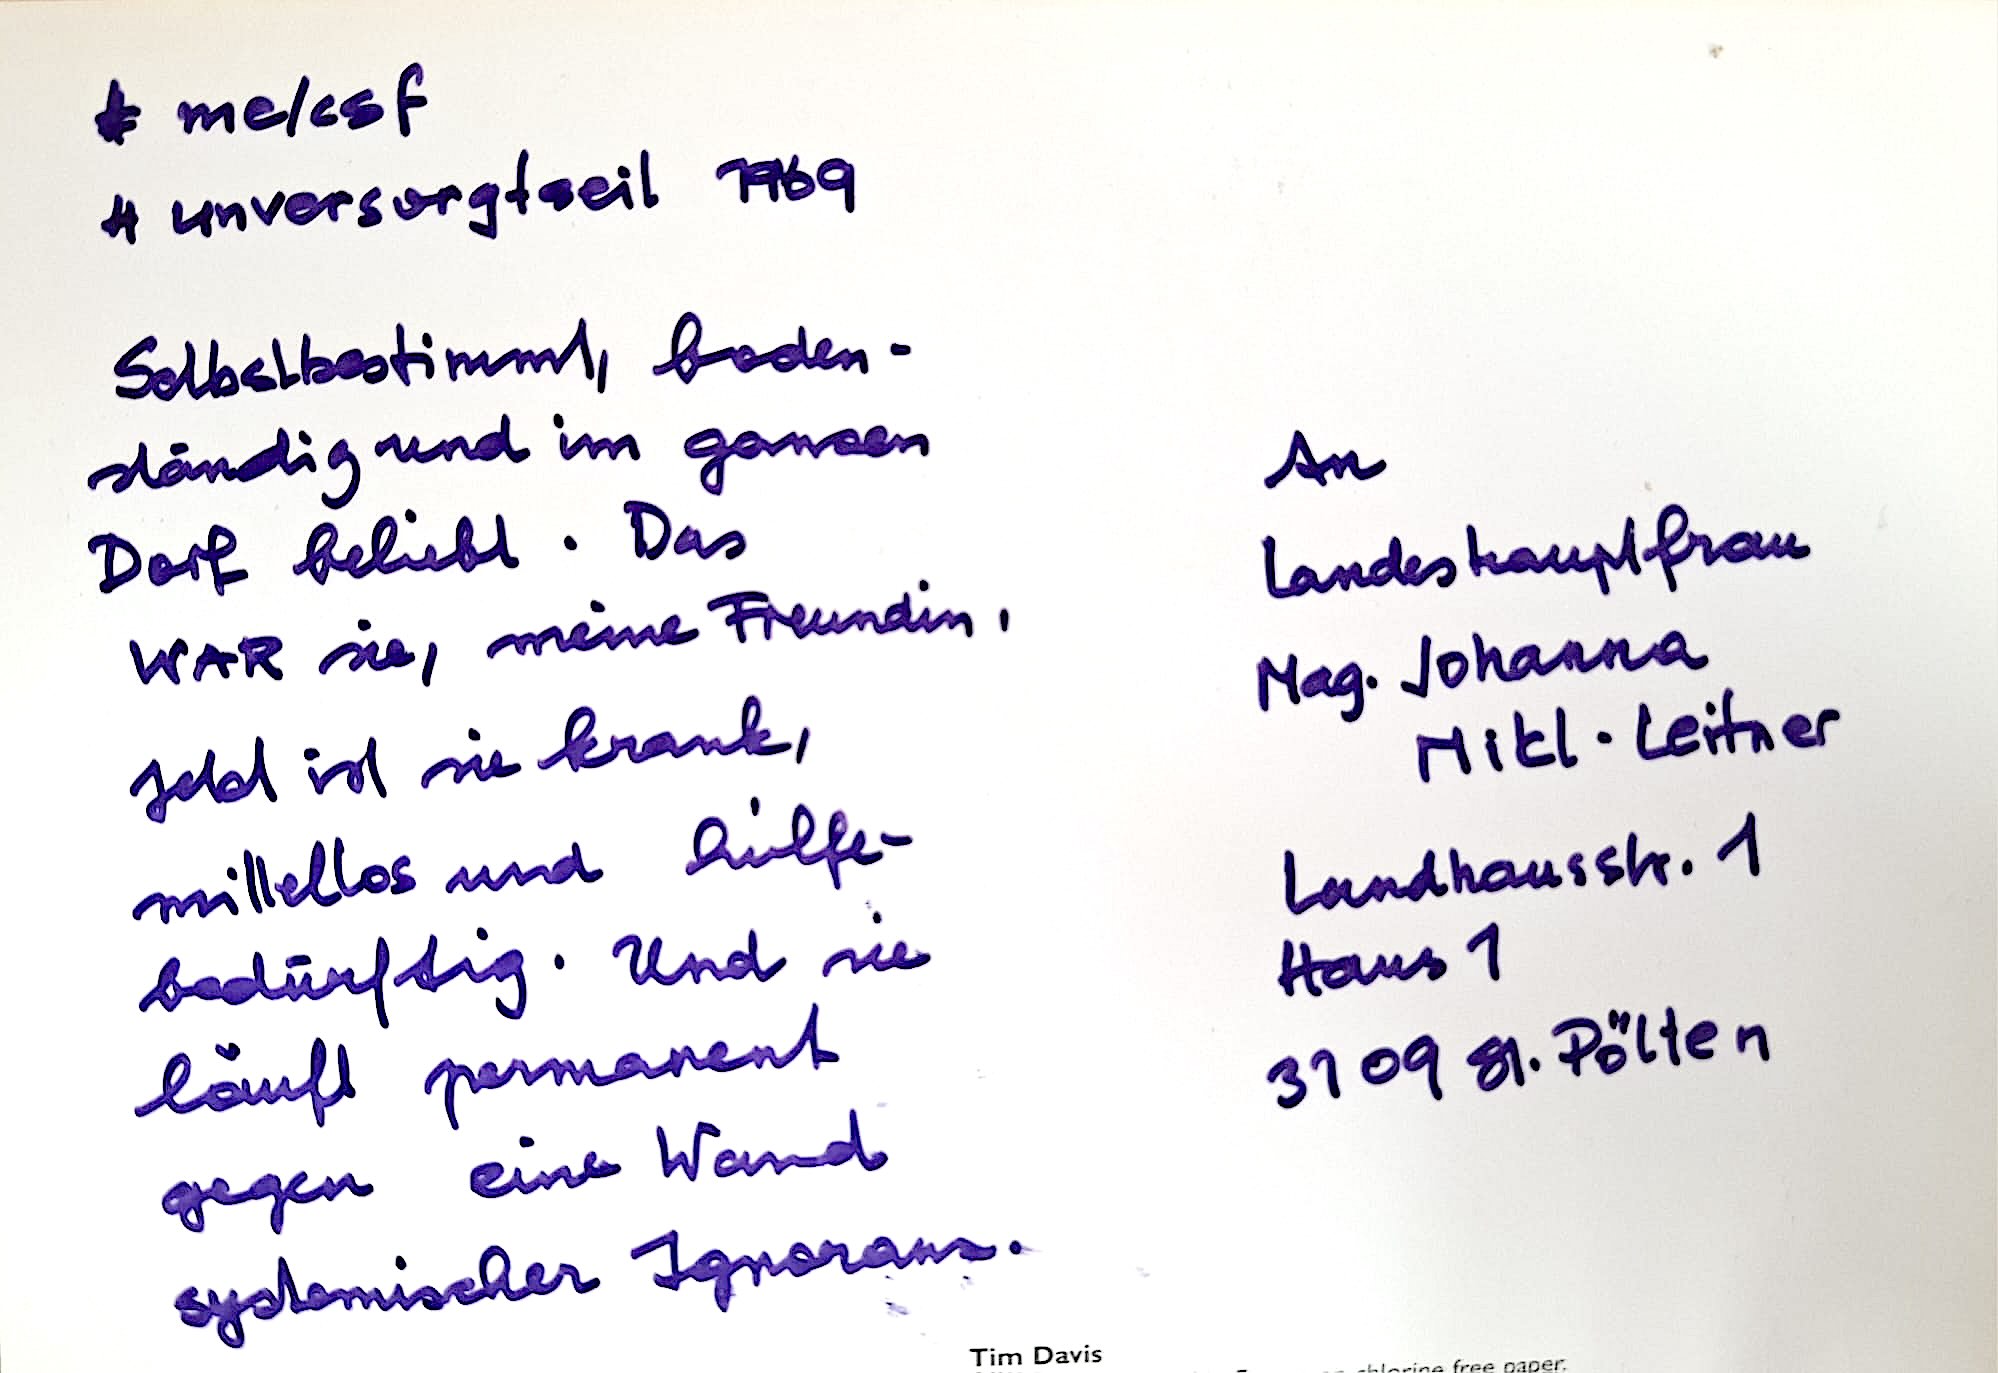 # me/csf
# unversorgtseit 1969
Selbstbestimmt, boden-
ständig und im ganzen
Dorf beliebt. Das
WAR sie, meine Freundin.
Jetzt ist sie krank,
mittellos und hilfe-
bedürftig. Und sie
läuft permanent
gegen eine Wand
systemischer Ignoranz.
An
Landeshauptfrau
Mag. Johanna
Mikl-Leitner
Landhausstr. 1
Haus 1
3109 St. Pölten
Tim Davis
chlorine free paper.